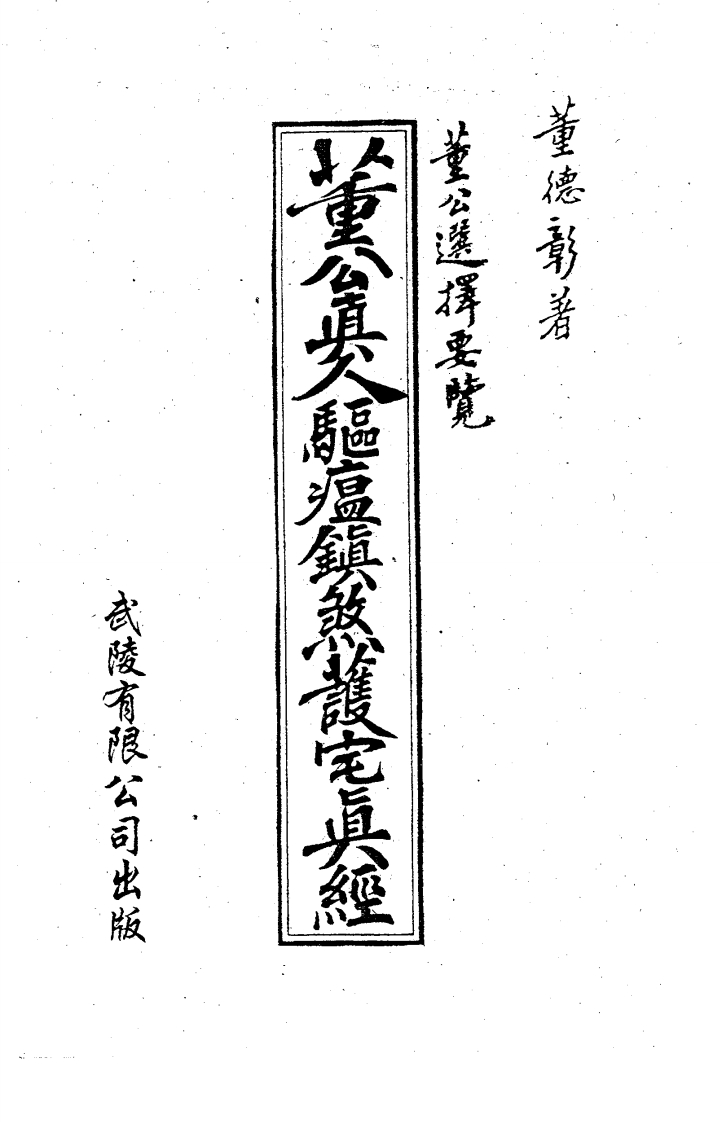 董德彰著
董公選擇要覽
董公眞人驅瘟鎮煞護宅眞經
武陵有限公司出版